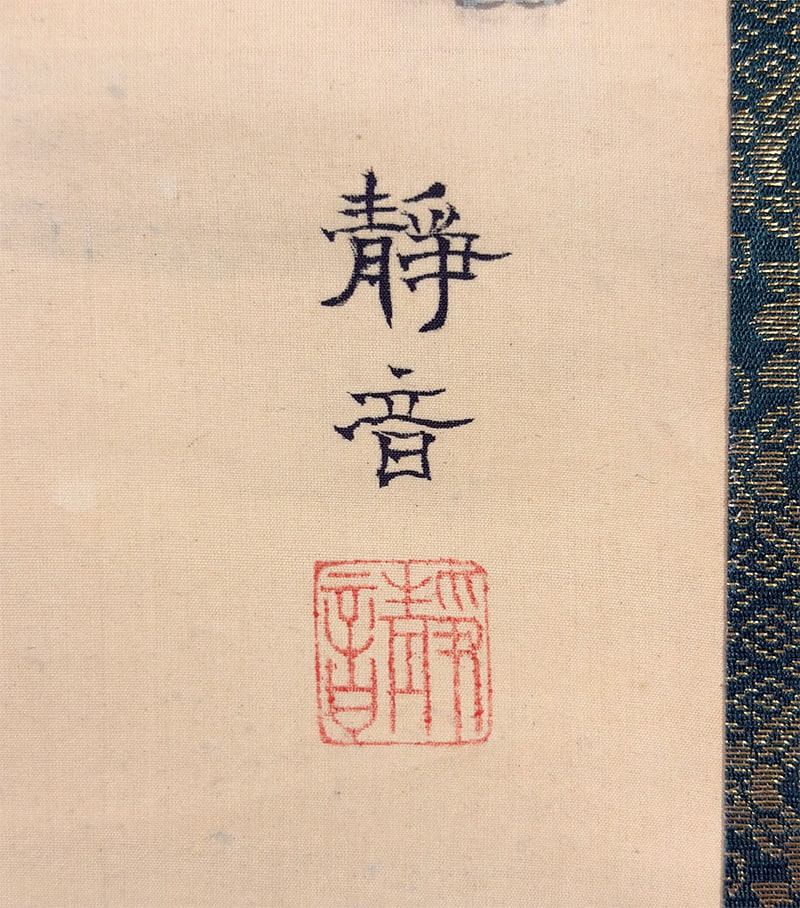 靜
音
靜音